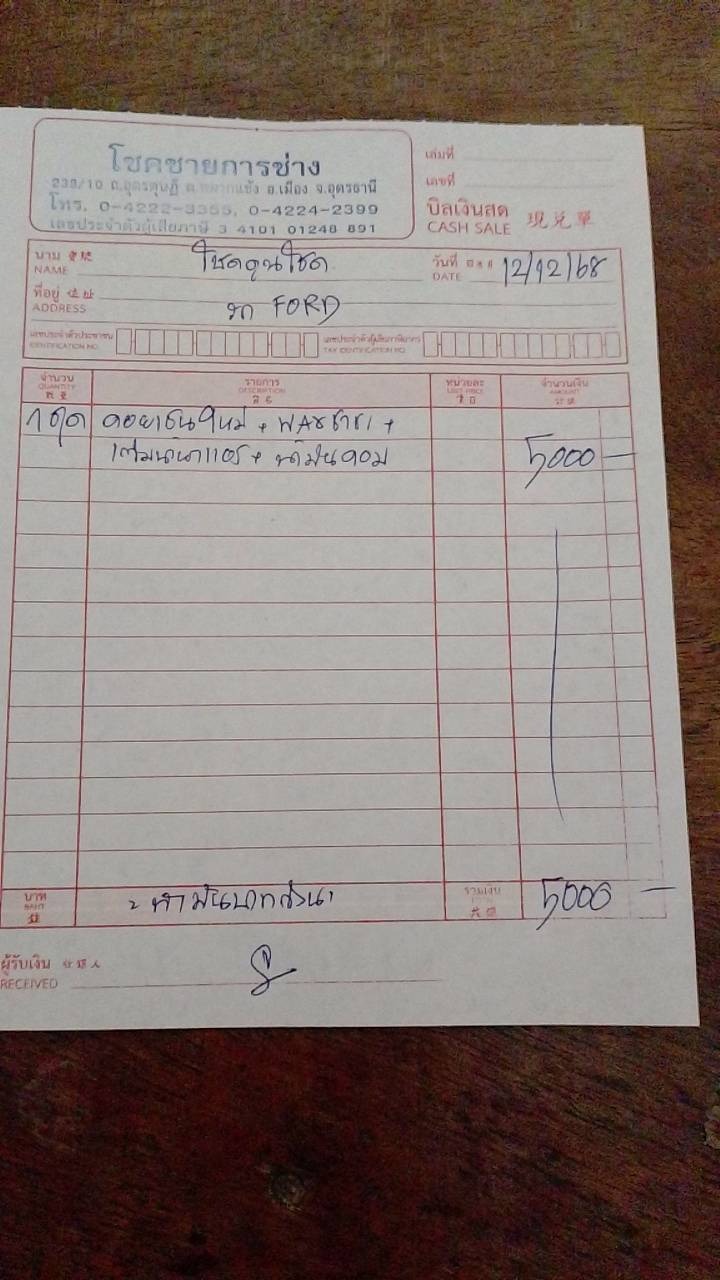 โชคชายการช่าง
239/10 ถ.อุดรดุษฎี ต.หมากแข้ง อ.เมือง จ.อุดรธานี
โทร. 0-4222-3355, 0-4224-2399
เลขประจำตัวผู้เสียภาษี 3 4101 01248 891
เล่มที่
เลขที่
บิลเงินสด 現兌單
CASH SALE
นาม
NAME
วันที่
DATE 12/12/68
ที่อยู่ 住址
ADDRESS
รถ FORD
เลขประจำตัวประชาชน
IDENTIFICATION NO.
เลขประจำตัวผู้เสียภาษีอากร
TAX IDENTIFICATION NO.
จำนวน
QUANTITY
รายการ
DESCRIPTION
หน่วยละ
UNIT PRICE
จำนวนเงิน
AMOUNT
1 ชุด
+ น้ำมันคอม 5000 —
บาท
BAHT
รวมเงิน
5000 —
ผู้รับเงิน
RECEIVED